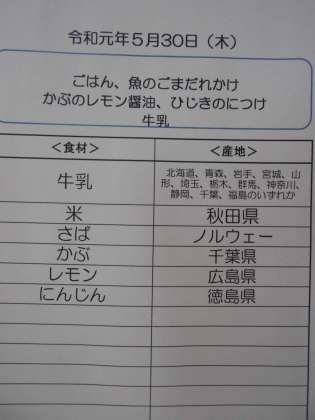 令和元年5月30日（木）
ごはん、魚のごまだれかけ
かぶのレモン醤油、ひじきのにつけ
牛乳
＜食材＞ ＜産地＞
牛乳 北海道、青森、岩手、宮城、山
形、埼玉、栃木、群馬、神奈川、
静岡、千葉、福島のいずれか
米 秋田県
さば ノルウェー
かぶ 千葉県
レモン 広島県
にんじん 徳島県